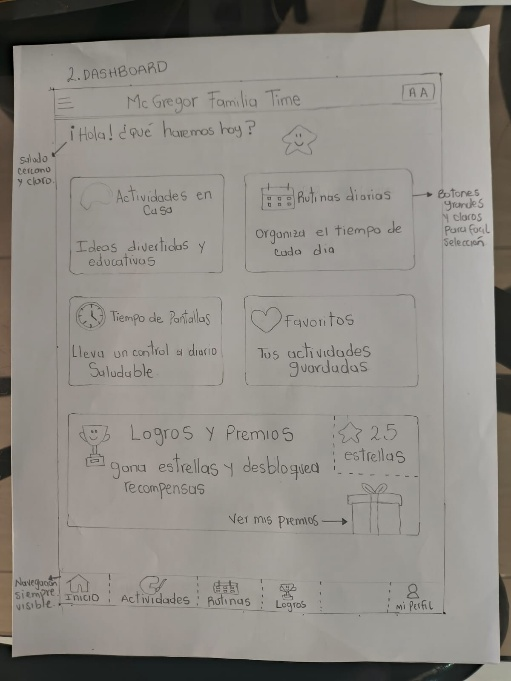 2. DASHBOARD
McGregor Familia Time
AA
¡Hola! ¿qué haremos hoy?
Saludo
cercano
y claro.
Actividades en
Casa
Ideas divertidas y
educativas
Rutinas diarias
Organiza el tiempo de
cada dia
Botones
grandes
y claros
Para facil
selección
Tiempo de Pantallas
Lleva un control a diario
Saludable
Favoritos
Tus actividades
guardadas
Logros y Premios
gana estrellas y desbloquea
recompensas
25
estrellas
Ver mis premios
Navegación
siempre
visible.
INICIO
Actividades
Rutinas
Logros
Mi Perfil